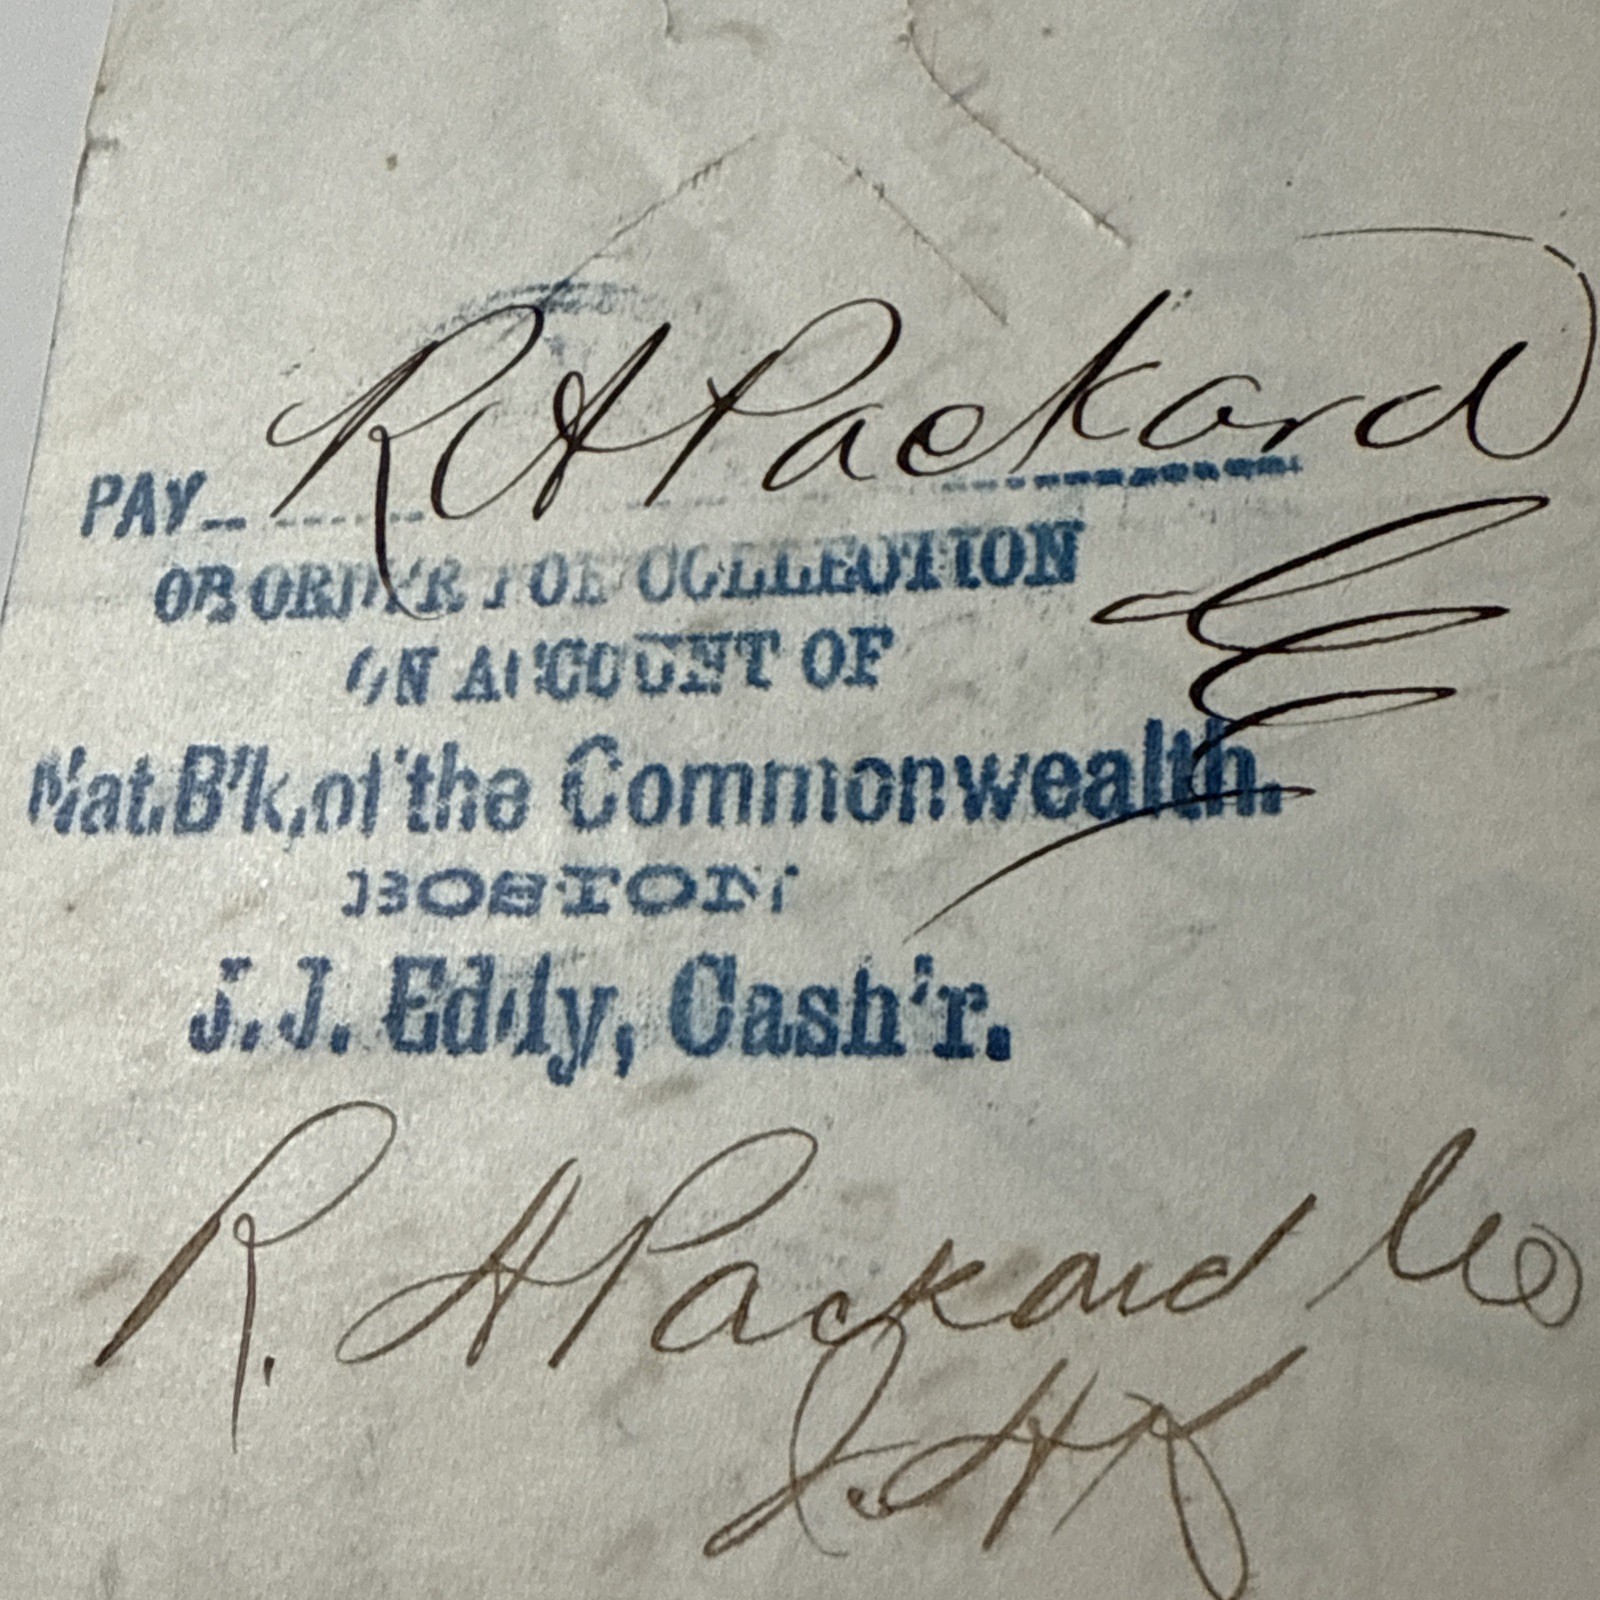 PAY R A Packard
OR ORDER FOR COLLECTION
ON ACCOUNT OF
Nat. B'k, of the Commonwealth.
BOSTON
J. J. Eddy, Cash'r.
R. A Packard Co